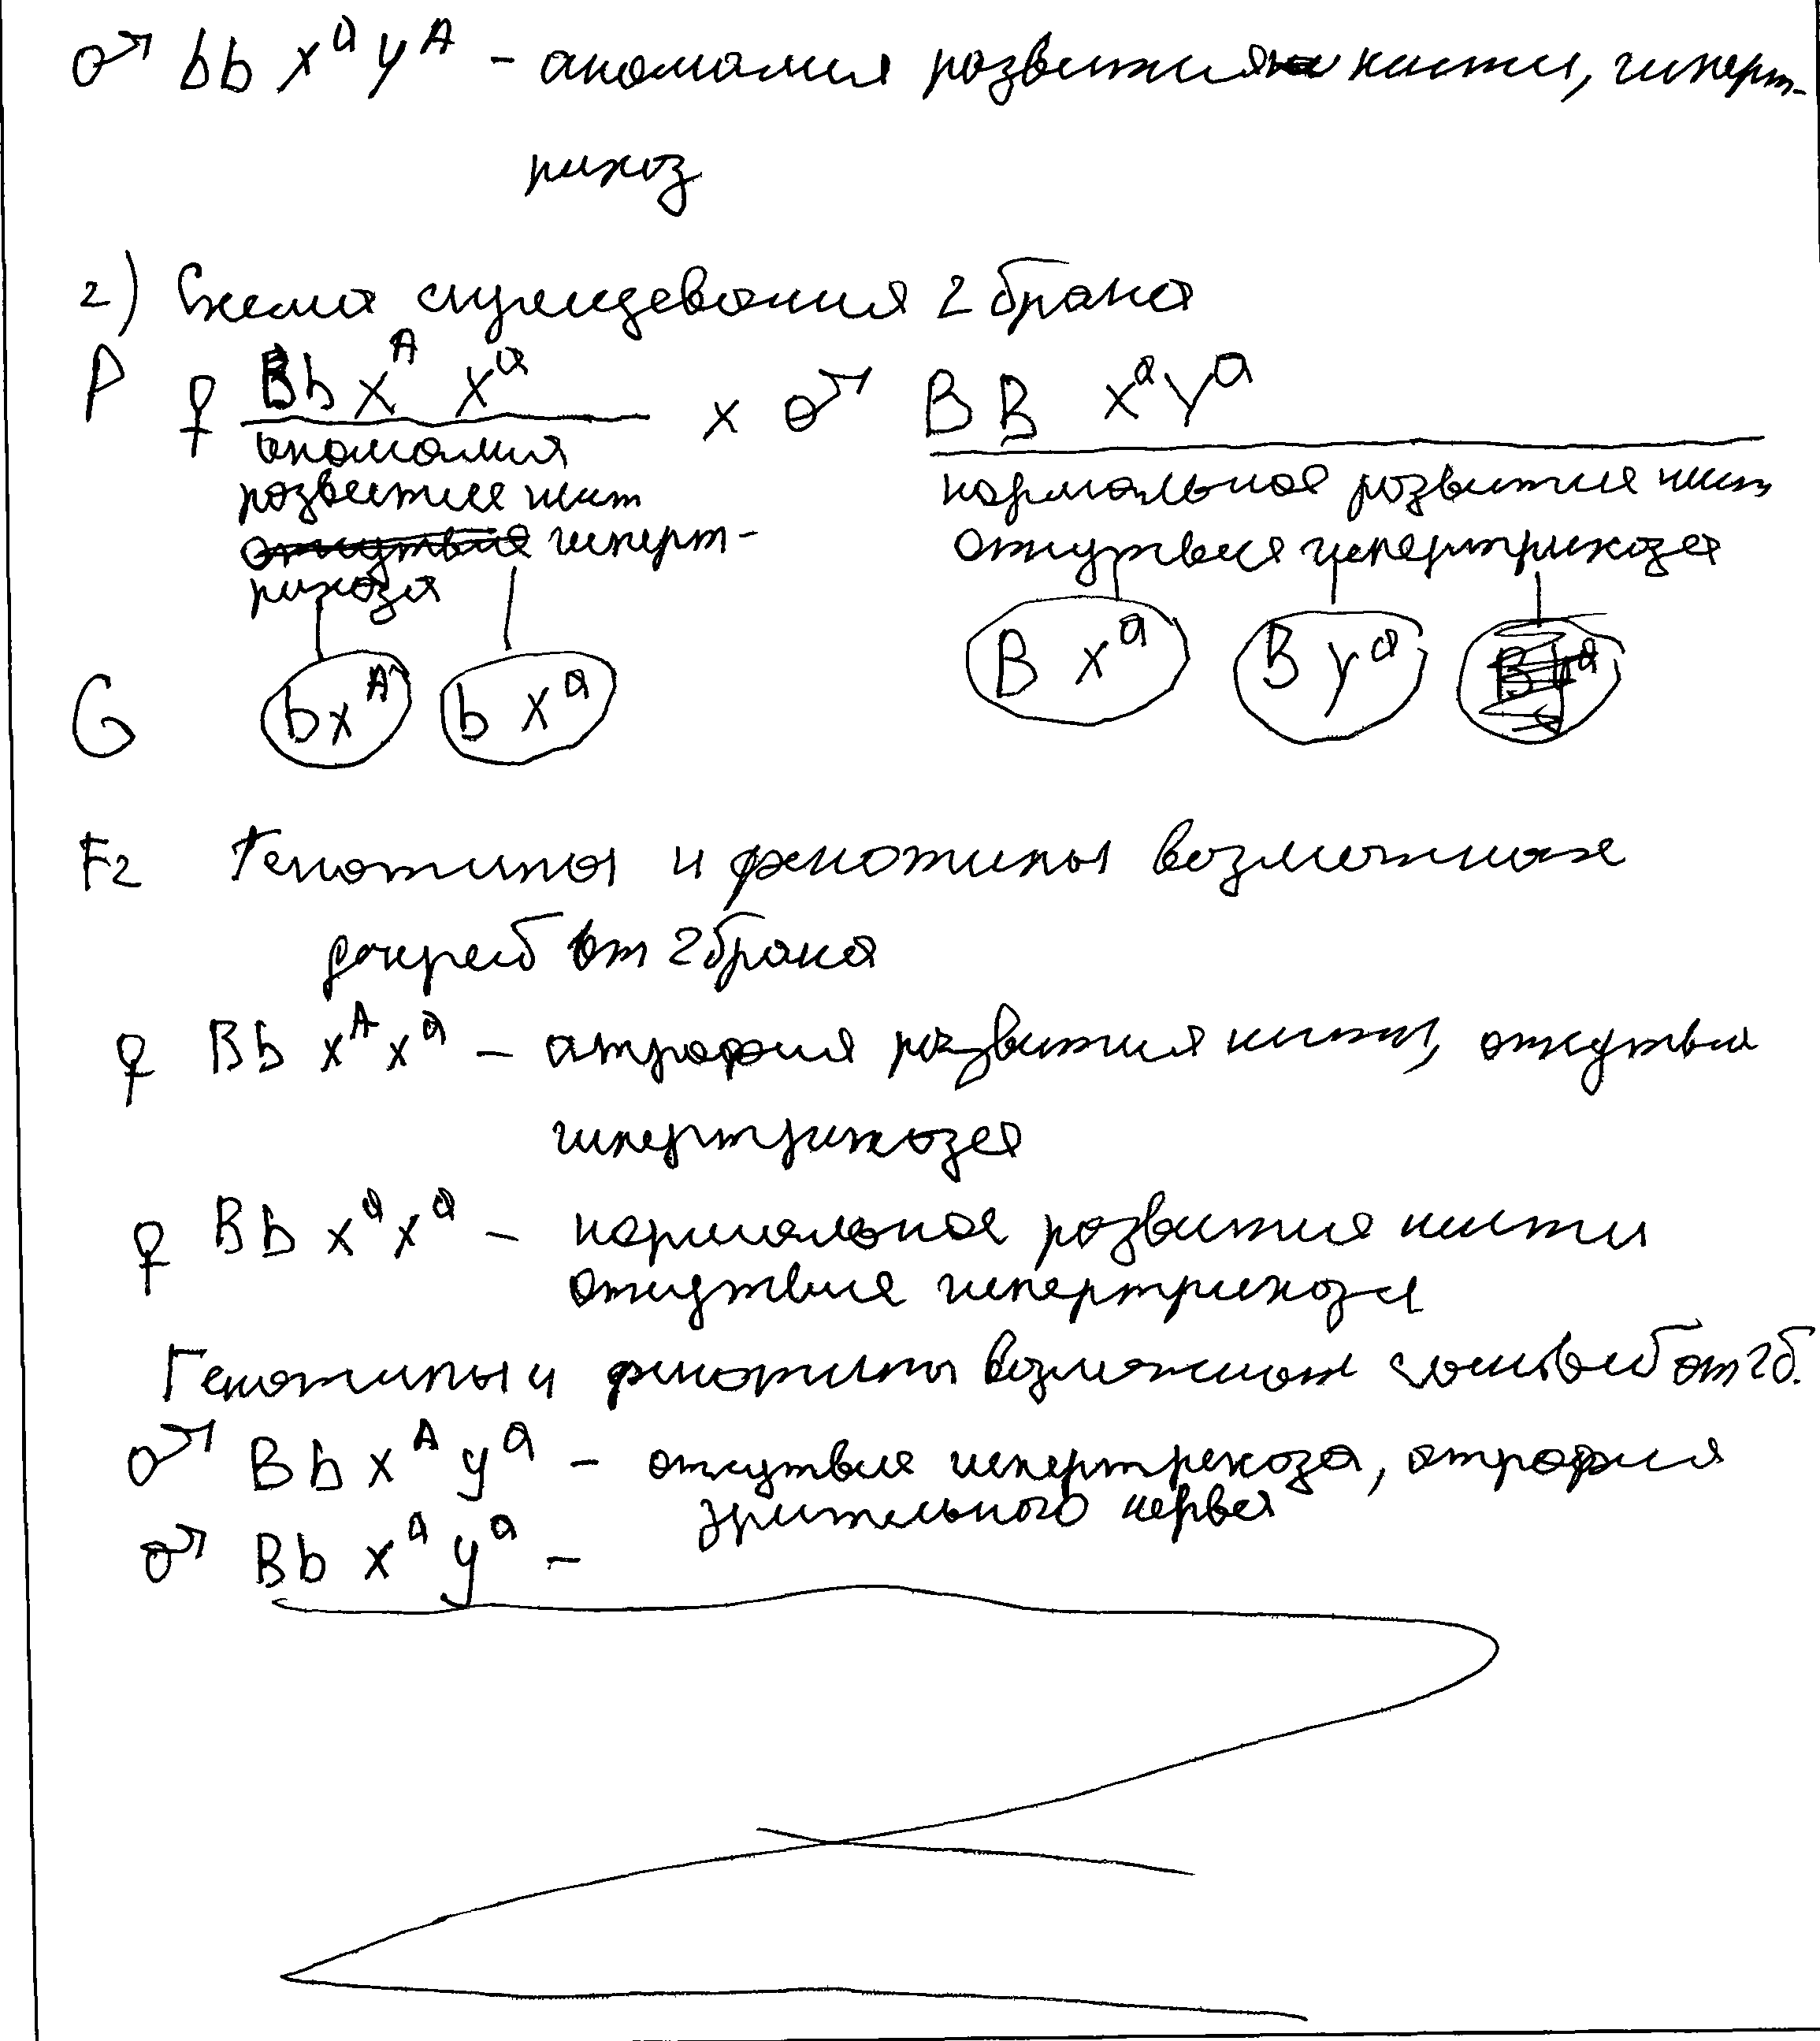 ♂ bb xᵃ yᴬ – аномалия развития кисти, гиперт-
рихоз
2) Схема скрещевания 2 брака
P ♀ Bb Xᴬ Xᵃ x ♂ BB xᵃYᵃ
аномалия
развитие кист
гиперт-
рихоза
нормальное развития кист
отсутвие гипертрихоза
G bxᴬ b xᵃ B xᵃ B yᵃ
F2 Генотипы и фенотипы возможных
дочерей от 2 брака
♀ Bb xᴬxᵃ – атрофия развития кисти, отсутвие
гипертрихоза
♀ Bb xᵃxᵃ – нормальное развития кисти
отсутвие гипертрихоза
Генотипы и фенотипы возможных сыновей от 2 б.
♂ Bb xᴬ yᵃ – отсутвие гипертрехоза, атрофия
зрительного нерва
♂ Bb xᵃ yᵃ –